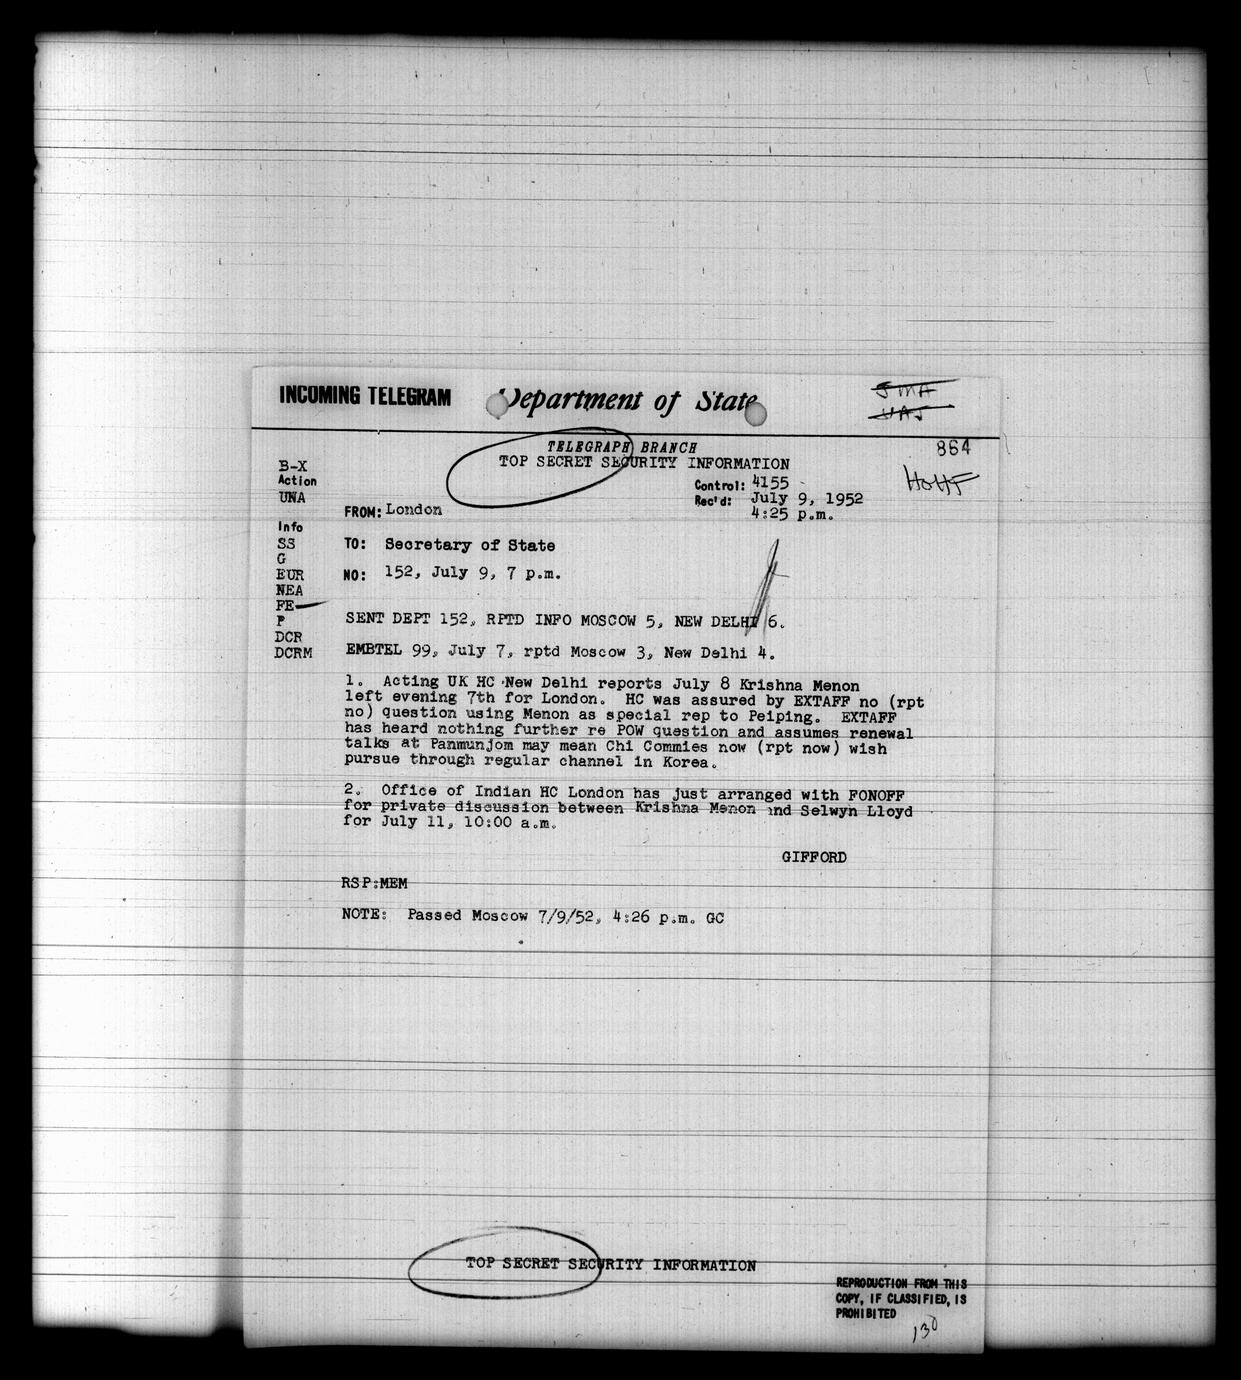 INCOMING TELEGRAM Department of State
TELEGRAPH BRANCH
864
TOP SECRET SECURITY INFORMATION
B-X
Action
UNA
Control: 4155
Rec'd: July 9, 1952
4:25 p.m.
FROM: London
Info
SS
G
EUR
NEA
FE
P
DCR
DCRM
TO: Secretary of State
NO: 152, July 9, 7 p.m.
SENT DEPT 152, RPTD INFO MOSCOW 5, NEW DELHI 6.
EMBTEL 99, July 7, rptd Moscow 3, New Delhi 4.
1. Acting UK HC New Delhi reports July 8 Krishna Menon
left evening 7th for London. HC was assured by EXTAFF no (rpt
no) question using Menon as special rep to Peiping. EXTAFF
has heard nothing further re POW question and assumes renewal
talks at Panmunjom may mean Chi Commies now (rpt now) wish
pursue through regular channel in Korea.
2. Office of Indian HC London has just arranged with FONOFF
for private discussion between Krishna Menon and Selwyn Lloyd
for July 11, 10:00 a.m.
GIFFORD
RSP:MEM
NOTE: Passed Moscow 7/9/52, 4:26 p.m. GC
TOP SECRET SECURITY INFORMATION
REPRODUCTION FROM THIS
COPY, IF CLASSIFIED, IS
PROHIBITED
130